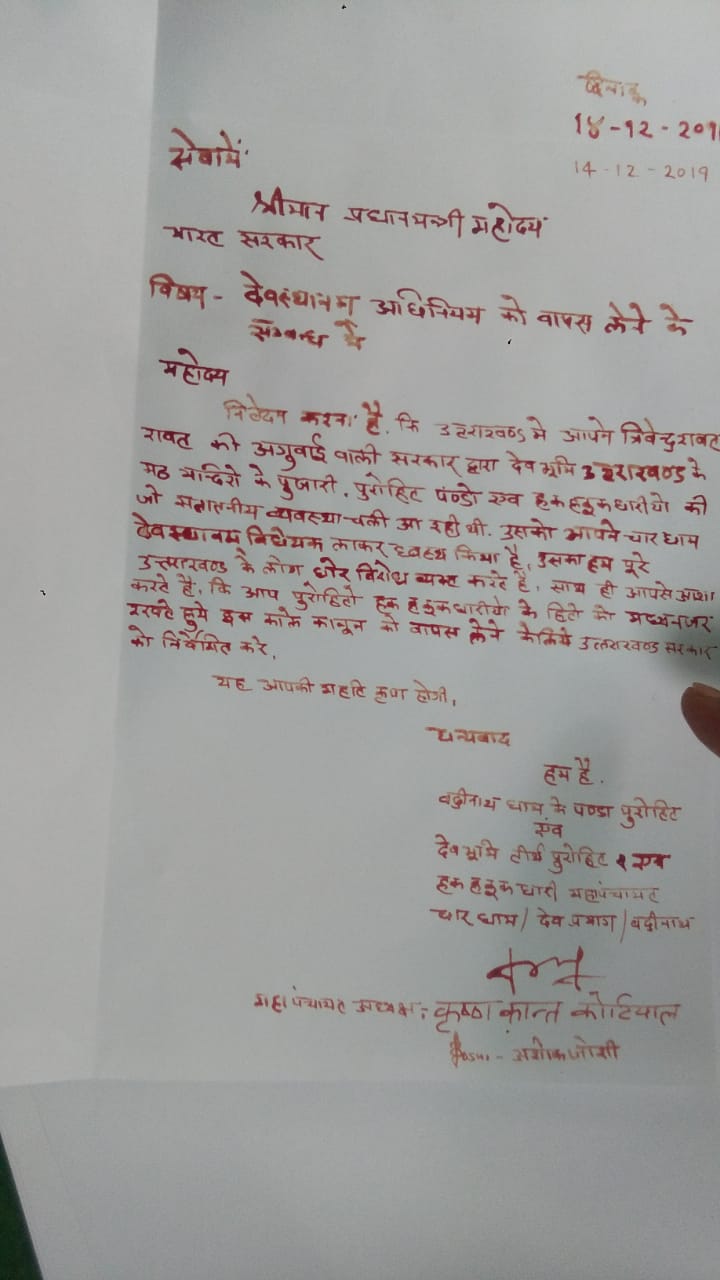 दिनाङ्क
14-12-201
14-12-2019
सेवामें
श्रीमान प्रधानमन्त्री महोदय
भारत सरकार
विषय - देवस्थानम अधिनियम को वापस लेने के
सम्बन्ध में
महोदय
निवेदन करना है. कि उत्तराखण्ड मे आपने त्रिवेन्द्र रावत
रावत की अगुवाई वाली सरकार द्वारा देव भूमि उत्तराखण्ड के
मठ मन्दिरो के पुजारी. पुरोहित पण्डो एवं हक हकूकधारीयो की
जो सनातनीय व्यवस्था चली आ रही थी. उसको आपने चार धाम
देवस्थानम विधेयक लाकर ध्वस्थ किया है, उसका हम पूरे
उत्तराखण्ड के लोग घोर विरोध व्यक्त करते है, साथ ही आपसे आशा
करते है. कि आप पुरोहितो हक हकूकधारीयो के हितो को मध्यनजर
रखते हुये इस काले कानून को वापस लेने केलिये उत्तराखण्ड सरकार
को निर्देशित करे,
यह आपकी महति कृपा होगी,
धन्यवाद
हम है.
बद्रीनाथ धाम के पण्डा पुरोहित
एंव
देव भूमि तीर्थ पुरोहित एवं
हक हकूक धारी महापंचायत
चार धाम / देव प्रयाग / बद्रीनाथ
महापंचायत अध्यक्ष: कृष्ण कान्त कोटियाल
- अशोक जोशी